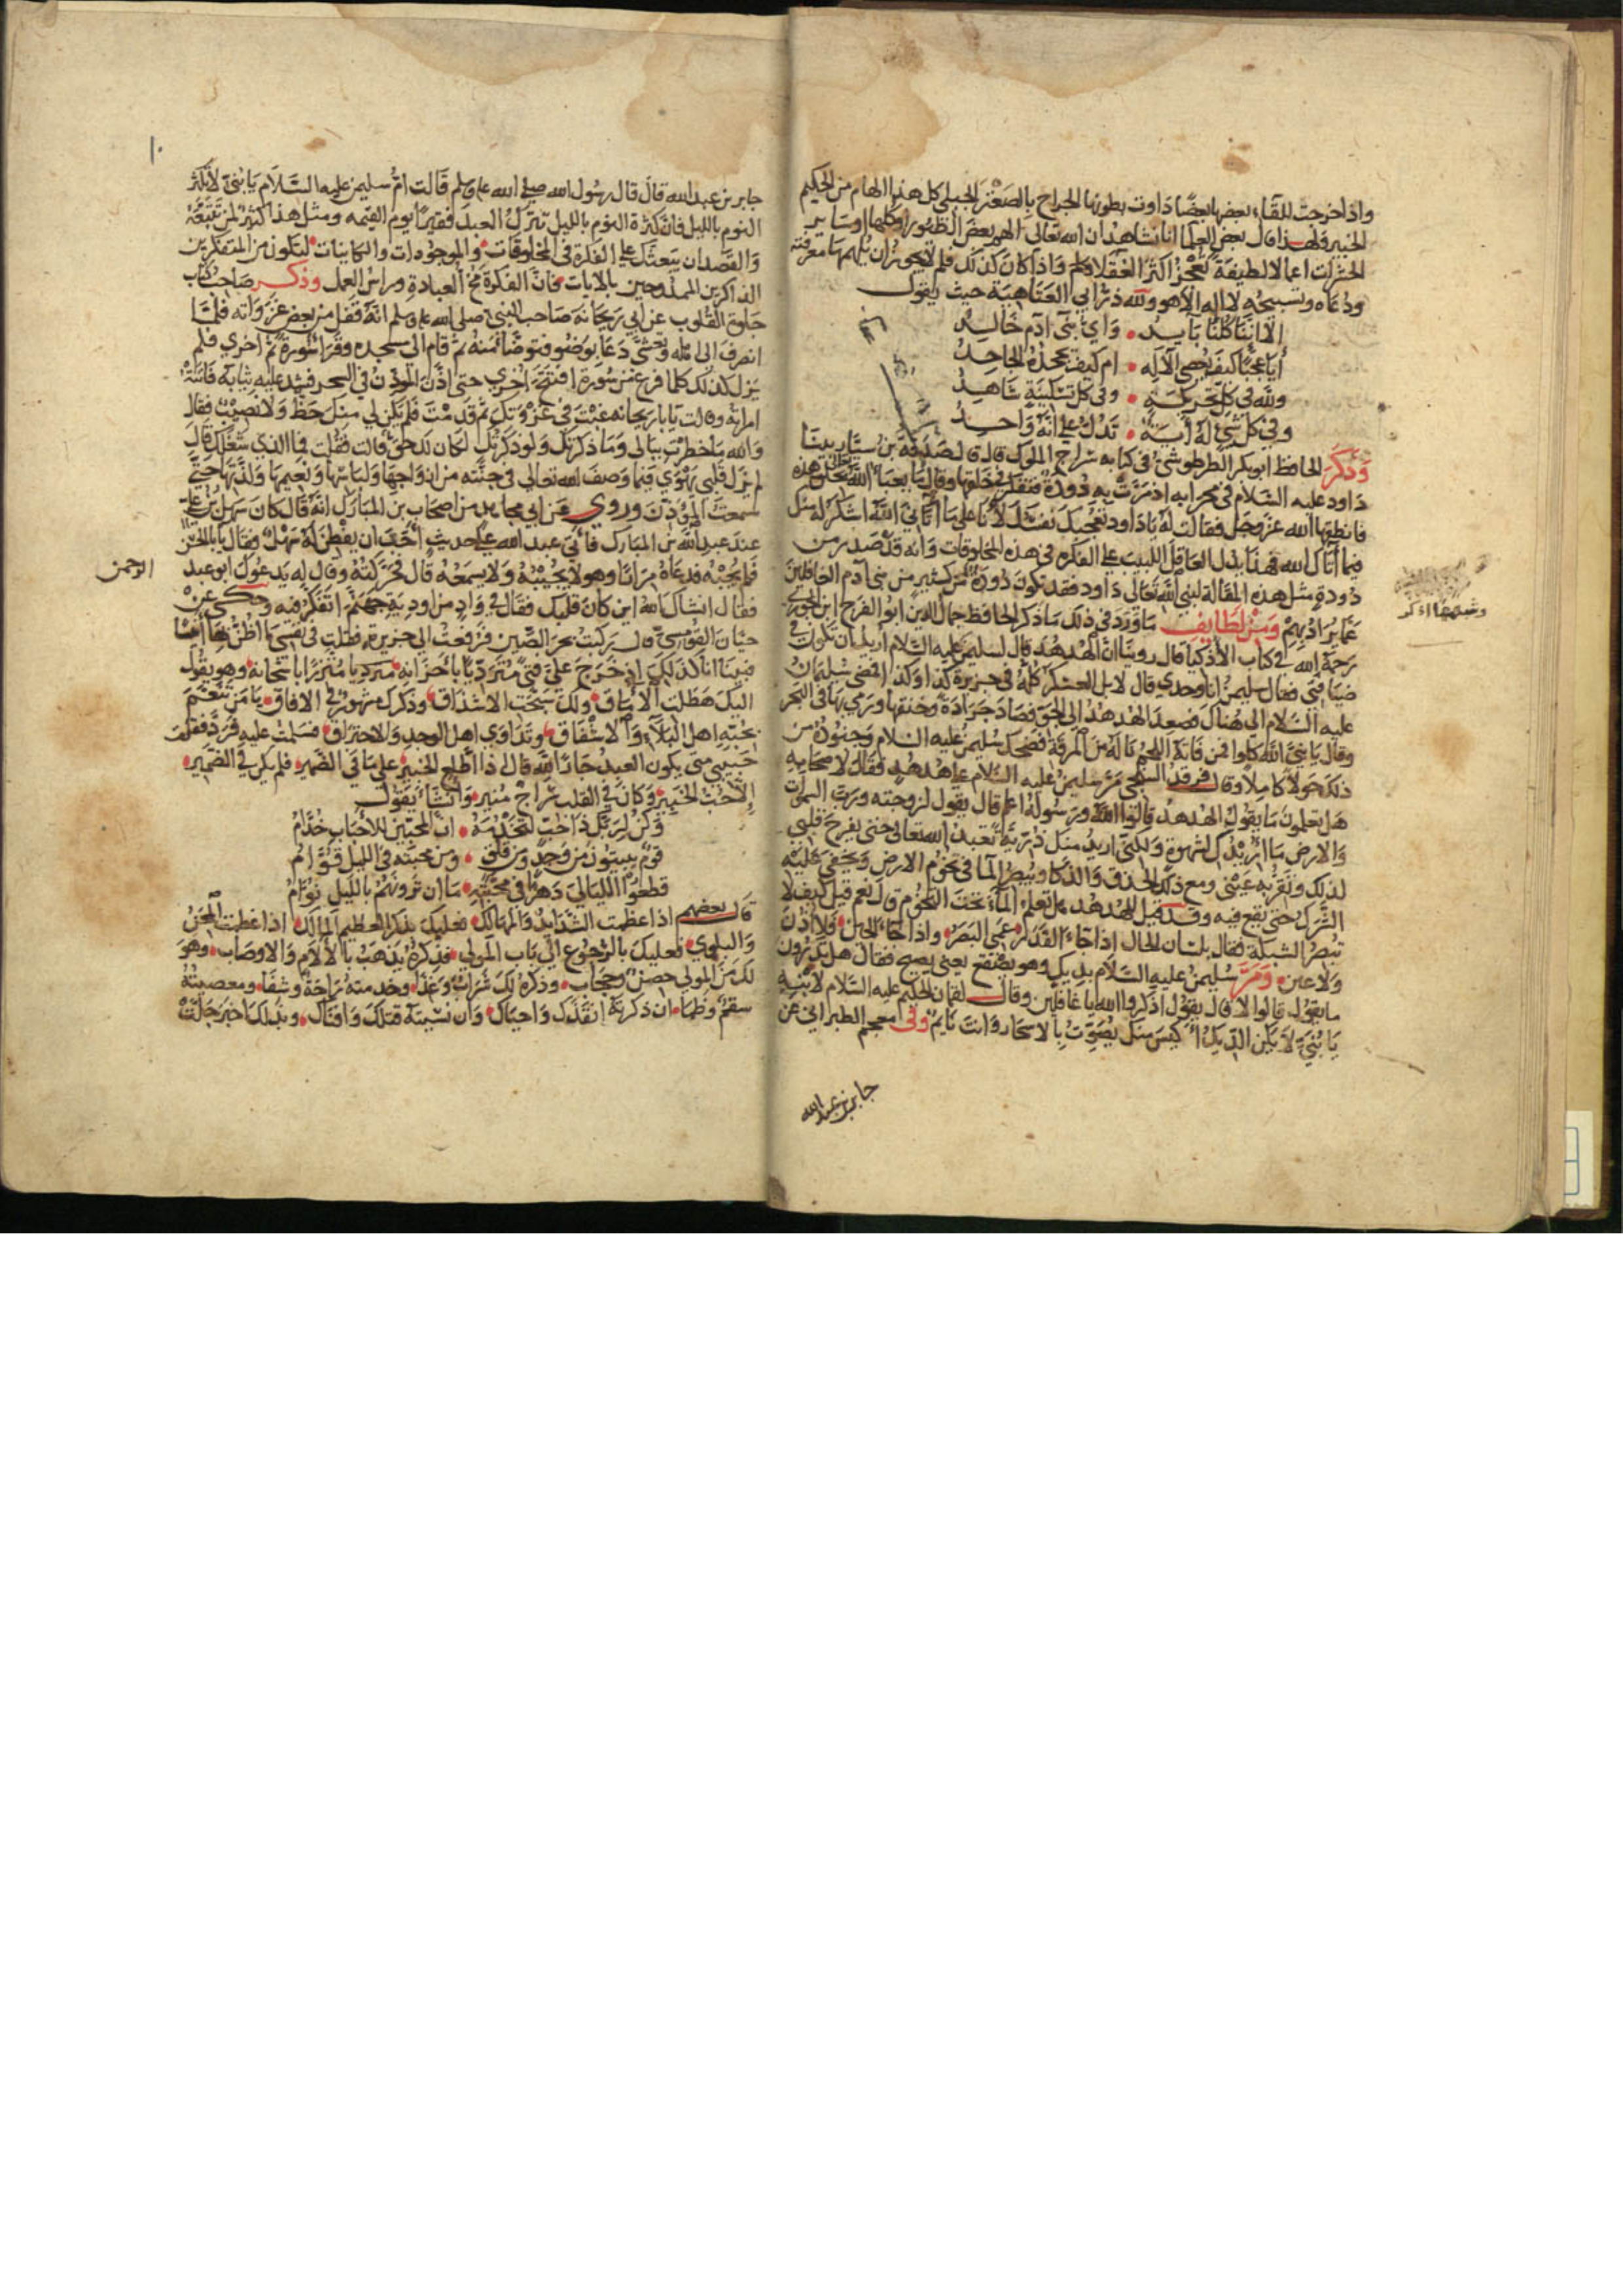 واذا خرجت للقاء بعضها بعضا داوت بطونها الجراح بالصعتر الجبلي كل هذا الهام من الحكيم
الخبير ولهذا قال بعض العلما انا نشاهد ان الله تعالى الهم بعض الطيور وكلها او ساير
الحشرات اعمالا لطيفة تعجز اكثر العقلا واذا كان كذلك فلم لا يجوز ان يلهمها معرفته
ودعاه وتسبيحه لا اله الا هو ولله در ابي العتاهية حيث يقول
الا اننا كلنا بايد • واي بني آدم خالد
أيا عجبا كيف يعصى الاله • ام كيف يجحده الجاحد
ولله في كل تحريكة • وفي كل تسكينة شاهد
وفي كل شي له آية • تدل على انه واحد
وذكر الحافظ ابو بكر الطرطوشي في كتابه سراج الملوك قال صدقة بن يسار بينا
داود عليه السلام في محرابه اذ مرت به دودة فتفكر في خلقها وقال ما يعبا الله بخلق هذه
فانطقها الله عز وجل فقالت له يا داود تعجبك نفسك لأنا على ما آتاني الله اشكر له منك
فيما أتاك الله فهذا يدل العاقل اللبيب على الفكرة في هذه المخلوقات وانه قد صدر من
دودة مثل هذه المقالة لنبي الله تعالى داود فقد تكون دودة كثير من بني آدم الغافلين
عما يراد بهم ومن لطايف ما ورد في ذلك ما ذكر الحافظ جمال الدين ابو الفرج ابن الجوزي
رحمة الله في كتاب الأذكيا قال روينا ان الهدهد قال لسليمن عليه السلام اريد ان تكون في
ضيافتي فقال سليمن انا وحدي قال لا بل العسكر كله في جزيرة كذا وكذا فمضى سليمان
عليه السلام الى هناك فصعد الهدهد الى الجو فصاد جرادة وخنقها ورمى بها في البحر
وقال يا نبي الله كلوا فمن فاته اللحم ناله من المرقة فضحك سليمن عليه السلام وجنوده من
ذلك حولا كاملا وقال فرقد السبخي مر سليمن عليه السلام على هدهد فقال لاصحابه
هل تعلمون ما يقول الهدهد قالوا الله ورسوله اعلم قال يقول لزوجته ورب السموات
والارض ما اريدك لشهوة ولكني اريد منك ذرية تعبد الله تعالى حتى يفرح قلبي
لذلك وتقر به عيني ومع ذلك الحذق والذكا ويبصر الما في تخوم الارض ويخفى عليه
الشرك حتى يقع فيه وقد قيل للهدهد هل تعلم الماء تحت التخوم قال نعم قيل كيف لا
تبصر الشبكة فقال بلسان الحال اذا جاء القدر عمي البصر واذا جاء الحين فلا اذن
ولا عين • ومر سليمن عليه السلام بديك وهو يصقع يعني يصيح فقال هل تدرون
ما يقول قالوا لا قال يقول اذكروا الله يا غافلين وقال لقمان الحكيم عليه السلام لابنه
يا بني لا يكن الديك أكيس منك يصوت بالاسحار وانت نايم وفي معجم الطبراني عن
جابر بن عبد الله
جابر بن عبد الله قال قال رسول الله صلى الله عليه وسلم قالت ام سليمن عليه السلام يا بني لا تكثر
النوم بالليل فان كثرة النوم بالليل تترك العبد فقيرا يوم القيمه ومثل هذا كثير لمن تتبعه
والقصد ان يبعثك على الفكرة في المخلوقات والموجودات والكاينات لتكون من المتفكرين
الذاكرين الممدوحين بالايات فان الفكرة مخ العبادة وراس العمل وذكر صاحب كتاب
جلوة القلوب عن ابي ريحانة صاحب النبي صلى الله عليه وسلم انه قفل من بعض غزواته فلما
انصرف الى اهله وتعشى دعا بوضوء فتوضا منه ثم قام الى مسجده وقرا سورة ثم اخرى فلم
يزل كذلك كلما فرغ من سورة افتتح اخرى حتى اذن الموذن في السحر فشد عليه ثيابه فاتته
امراته وقالت يا ابا ريحانه غبت في غزوتك ثم قدمت فلم يكن لي منك حظ ولا نصيب فقال
والله ما خطرت ببالي وما ذكرتك ولو ذكرتك لكان لك حق قالت فقلت فما الذي شغلك قال
لم يزل قلبي يهوي فيما وصف الله تعالى في جنته من ازواجها ولباسها ونعيمها ولذتها حتى
سمعت الموذن وروي عن ابي مجاهد من اصحاب بن المبارك انه قال كان سهل بن علي
عند عبد الله بن المبارك فاتى عبد الله على حديث أحب ان يفطن له سهل فقال يا ابا الحسن
فلم يجبه فدعاه مرارا وهو لا يجيبه ولا يسمعه قال فحركته وقال له يدعوك ابو عبد
الرحمن
فقال انشاك الله اين كان قلبك فقال في واد من اودية جهنم اتفكر فيه وحكي عن
حيان القومسي قال ركبت بحر الصين فرفعت الى جزيرة فقلت في نفسي ما اظن هنا أنسا
فبينا انا كذلك اذ خرج علي فتى مترديا باحزانه متبررا باشجانه وهو يقول
اليك هطلت الاماق ولك سبحت الاشداق وذكرك مشهور في الافاق يا من تنعم
بمحبته اهل البلاء والاشفاق وتداوي اهل الوجد والاحتراق فسلمت عليه فرد فقلت
حبيبي متى يكون العبد جارا لله قال اذا اطلع الخبير على ما في الضمير فلم يكن في الضمير
إلا حب الخبير وكان في القلب سراج منير وانشا يقول
وكن لربك ذا حب لتخدمه • ان المحبين للاحباب خدام
قوم يبيتون من وجد ومن قلق • ومن محبته في الليل قوام
قطعوا الليالي دهرا في محبته • ما ان تراهم بالليل نوام
قال بعضهم اذا عظمت الشدايد والمهالك فعليك بذكر العظيم المالك اذا عظمت المحن
والبلوى فعليك بالرجوع الى باب المولى فذكره يذهب بالالام والاوصاب وهو
لك من المولى حصن وحجاب وذكره لك شراب وغذا وخدمته راحة وشفا ومعصيته
سقم وظما ان ذكرته انقذك واحياك وان نسيته قتلك وافناك وبذلك اخبر جلت